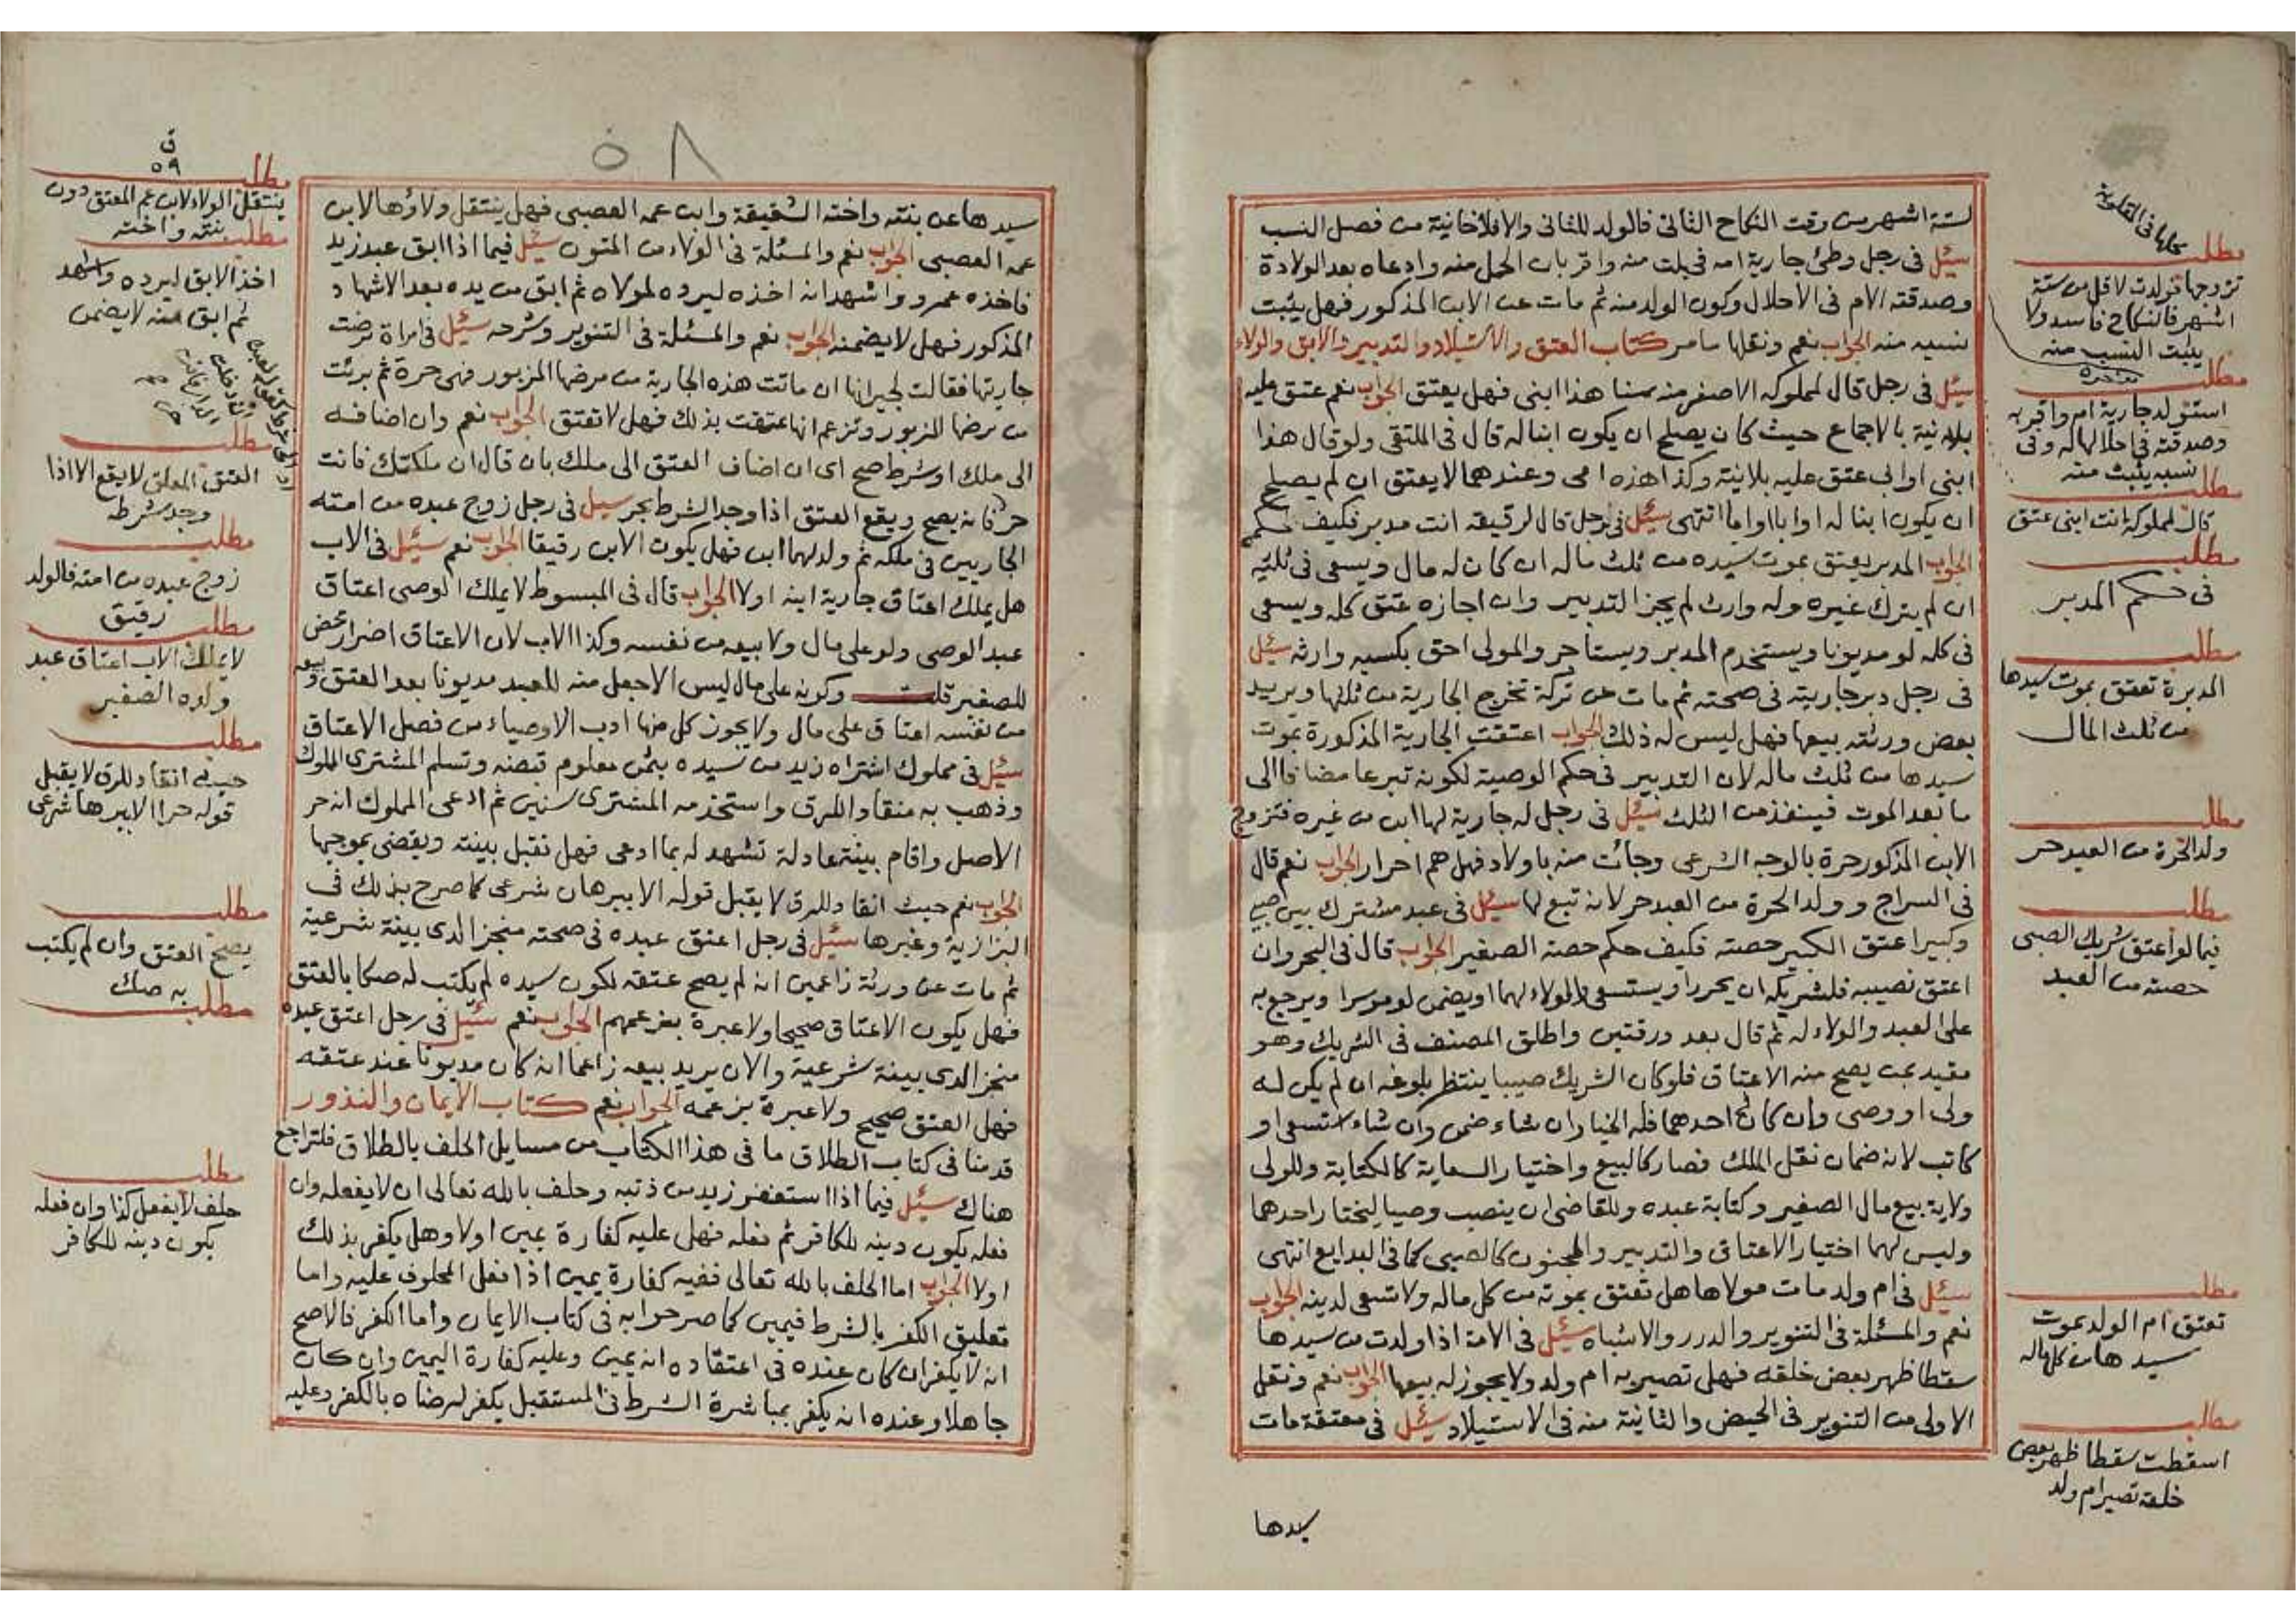 لستة اشهر من وقت النكاح الثانى فالولد للثانى والا فلا خانية من فصل النسب
سئل فى رجل وطئ جارية امه فحبلت منه واقر بان الحمل منه وادعاه بعد الولادة
وصدقته الام فى الاحلال وكون الولد منه ثم مات عن الابن المذكور فهل يثبت
نسبه منه الجواب نعم ونقلها ما مر كتاب العتق والاستيلاد والتدبير والابق والولاء
سئل فى رجل قال لمملوكه الاصغر منه سنا هذا ابنى فهل يعتق الجواب نعم عتق عليه
بلا نية بالاجماع حيث كان يصلح ان يكون ابنا له قال فى الملتقى ولو قال هذا
ابنى او ابى عتق عليه بلا نية وكذا هذه امى وعندهما لا يعتق ان لم يصلح
ان يكون ابنا له او ابا او اما انتهى سئل فى رجل قال لرقيقه انت مدبر فكيف حكمه
الجواب المدبر يعتق بموت سيده من ثلث ماله ان كان له مال ويسعى فى ثلثيه
ان لم يترك غيره وله وارث لم يجز التدبير وان اجازه عتق كله ويسعى
فى كله لو مديونا ويستخدم المدبر ويستاجر والمولى احق بكسبه وارثه سئل
فى رجل دبر جاريته فى صحته ثم مات عن تركة تخرج الجارية من ثلثها ويريد
بعض ورثته بيعها فهل ليس له ذلك الجواب اعتقت الجارية المذكورة بموت
سيدها من ثلث ماله لان التدبير فى حكم الوصية لكونه تبرعا مضافا الى
ما بعد الموت فينفذ من الثلث سئل فى رجل له جارية لها ابن من غيره فتزوج
الابن المذكور حرة بالوجه الشرعى وجائت منه باولاد فهل هم احرار الجواب نعم قال
فى السراج وولد الحرة من العبد حر لانه تبع لها سئل فى عبد مشترك بين صبى
وكبير اعتق الكبير حصته فكيف حكم حصته الصغير الجواب قال فى البحر وان
اعتق نصيبه فلشريكه ان يحرر او يستسعى والولاء لهما او يضمن لو موسرا ويرجع به
على العبد والولاء له ثم قال بعد ورقتين واطلق المصنف فى الشريك وهو
مقيد بمن يصح منه الاعتاق فلو كان الشريك صبيا ينتظر بلوغه ان لم يكن له
ولى او وصى وان كان احدهما فله الخيار ان شاء ضمن وان شاء استسعى او
كاتب لانه ضمان نقل الملك فصار كالبيع واختيار السعاية كالكتابة وللولى
ولاية بيع مال الصغير وكتابة عبده وللقاضى ان ينصب وصيا ليختار احدهما
وليس لهما اختيار الاعتاق والتدبير والمجنون كالصبى كما فى البدايع انتهى
سئل فى ام ولد مات مولاها هل تعتق بموته من كل ماله ولا تسعى لدينه الجواب
نعم والمسئلة فى التنوير والدرر والاشباه سئل فى الامة اذا ولدت من سيدها
سقطا ظهر بعض خلقه فهل تصير به ام ولد ولا يجوز له بيعها الجواب نعم ونقل
الاولى من التنوير فى الحيض والثانية منه فى الاستيلاد سئل فى معتقة مات
سيدها
مطلب
تزوجها فولدت لاقل من ستة
اشهر فالنكاح فاسد ولا
يثبت النسب منه
مطلب
استولد جارية امه واقر به
وصدقته فى احلالها له وفى
نسبه يثبت منه
مطلب
قال لمملوكه انت ابنى عتق
مطلب
فى حكم المدبر
مطلب
المدبرة تعتق بموت سيدها
من ثلث المال
مطلب
ولد الحرة من العبد حر
مطلب
فيما لو اعتق شريك الصبى
حصته من العبد
مطلب
تعتق ام الولد بموت
سيدها من كل ماله
مطلب
اسقطت سقطا ظهر بعض
خلقه تصير ام ولد
٥٨
سيدها عن بنته واخته الشقيقة وابن عمه العصبى فهل ينتقل ولاؤها لابن
عمه العصبى الجواب نعم والمسئلة فى الولاء من المتون سئل فيما اذا ابق عبد زيد
فاخذه عمرو واشهد انه اخذه ليرده لمولاه ثم ابق من يده بعد الاشهاد
المذكور فهل لا يضمنه الجواب نعم والمسئلة فى التنوير وشرحه سئل فى امراة مرضت
جاريتها فقالت لجيرانها ان ماتت هذه الجارية من مرضها المزبور فهى حرة ثم برئت
من مرضها المزبور وتزعم انها عتقت بذلك فهل لا تعتق الجواب نعم وان اضافه
الى ملك او شرط صح اى ان اضاف العتق الى ملك بان قال ان ملكتك فانت
حر فانه يصح ويقع العتق اذا وجد الشرط بحر سئل فى رجل زوج عبده من امته
الجاريين فى ملكه ثم ولد لهما ابن فهل يكون الابن رقيقا الجواب نعم سئل فى الاب
هل يملك اعتاق جارية ابنه او لا الجواب قال فى المبسوط لا يملك الوصى اعتاق
عبد الوصى ولو على مال ولا بيعه من نفسه وكذا الاب لان الاعتاق اضرار محض
للصغير قلت وكونه على مال ليس الا جعل منه للعبد مديونا بعد العتق وبيعه
من نفسه اعتاق على مال ولا يجوز كل منها ادب الاوصياء من فصل الاعتاق
سئل فى مملوك اشتراه زيد من سيده بثمن معلوم قبضه وتسلم المشترى المملوك
وذهب به منقادا للرق واستخدمه المشترى سنين ثم ادعى المملوك انه حر
الاصل واقام بينة عادلة تشهد له بما ادعى فهل تقبل بينته ويقضى بموجبها
الجواب نعم حيث انقاد للرق لا يقبل قوله الا ببرهان شرعى كما صرح بذلك فى
البزازية وغيرها سئل فى رجل اعتق عبده فى صحته منجزا لدى بينة شرعية
ثم مات عن ورثة زاعمين انه لم يصح عتقه لكون سيده لم يكتب له صكا بالعتق
فهل يكون الاعتاق صحيحا ولا عبرة بزعمهم الجواب نعم سئل فى رجل اعتق عبده
منجزا لدى بينة شرعية والان يريد بيعه زاعما انه كان مديونا عند عتقه
فهل العتق صحيح ولا عبرة بزعمه الجواب نعم كتاب الايمان والنذور
قدمنا فى كتاب الطلاق ما فى هذا الكتاب من مسايل الحلف بالطلاق فلتراجع
هناك سئل فيما اذا استغفر زيد من ذنبه وحلف بالله تعالى ان لا يفعله وان
فعله يكون دينه للكافر ثم فعله فهل عليه كفارة يمين او لا وهل يكفر بذلك
او لا الجواب اما الحلف بالله تعالى ففيه كفارة يمين اذا فعل المحلوف عليه واما
تعليق الكفر بالشرط فيمين كما صرحوا به فى كتاب الايمان واما الكفر فالاصح
انه لا يكفر ان كان عنده فى اعتقاده انه يمين وعليه كفارة اليمين وان كان
جاهلا وعنده انه يكفر بمباشرة الشرط فى المستقبل يكفر لرضاه بالكفر وعليه
٥٩
مطلب
ينتقل الولاء لابن عم المعتق دون
بنته واخته
مطلب
اخذ الابق ليرده واشهد
ثم ابق منه لا يضمن
مطلب
العتق المعلق لا يقع الا اذا
وجد شرطه
مطلب
زوج عبده من امته فالولد
رقيق
مطلب
لا يملك الاب اعتاق عبد
ولده الصغير
مطلب
حيث انقاد للرق لا يقبل
قوله حرا الا ببرهان شرعى
مطلب
يصح العتق وان لم يكتب
به صك
مطلب
مطلب
حلف لا يفعل كذا وان فعله
يكون دينه للكافر